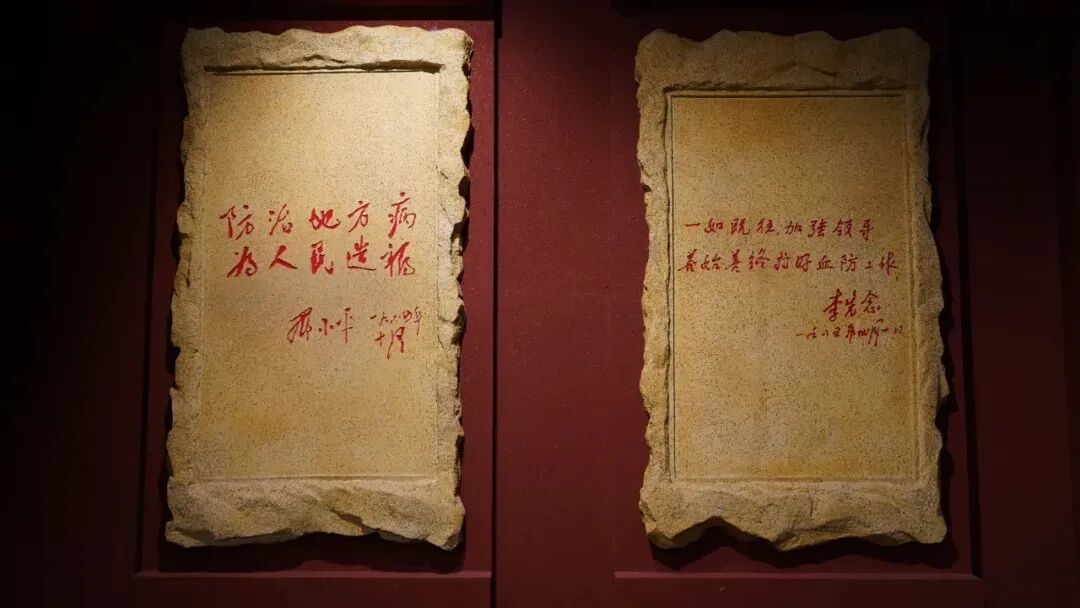 防治地方病
为人民造福
邓小平 一九八四年
十月
一如既往,加强领导
善始善终搞好血防工作
李先念
一九八五年四月一日